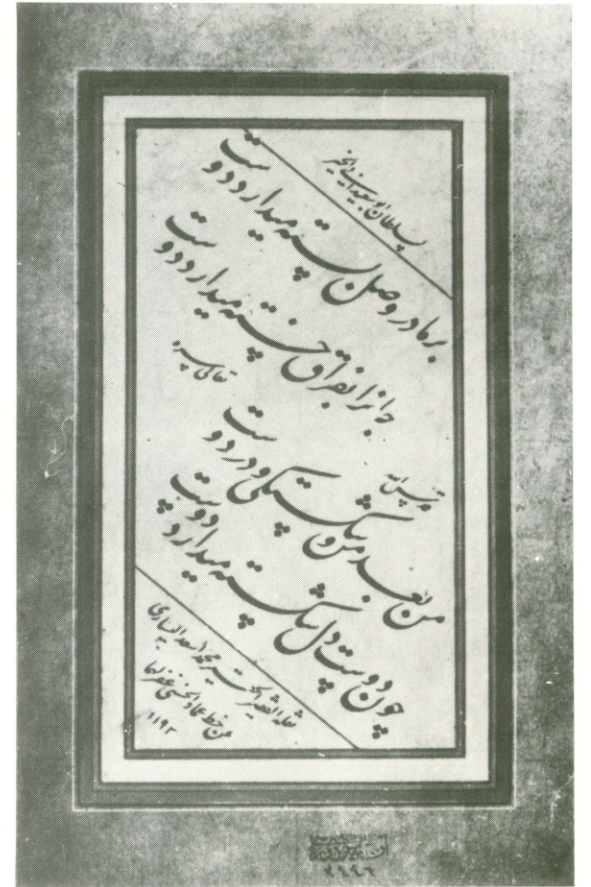 سلطان ابو سعید ابی الخیر
بر ما در وصل بسته میدارد دوست
جانرا بفراق خسته میدارد دوست
قدس الله
تعالی سره
من بعد من و شکستگی و در دوست
چون دوست دل شکسته میدارد دوست
نقله الفقیر الحقیر محمد اسعد الیساری
من خط عماد الحسنی غفر لهما
۱۱۹۲